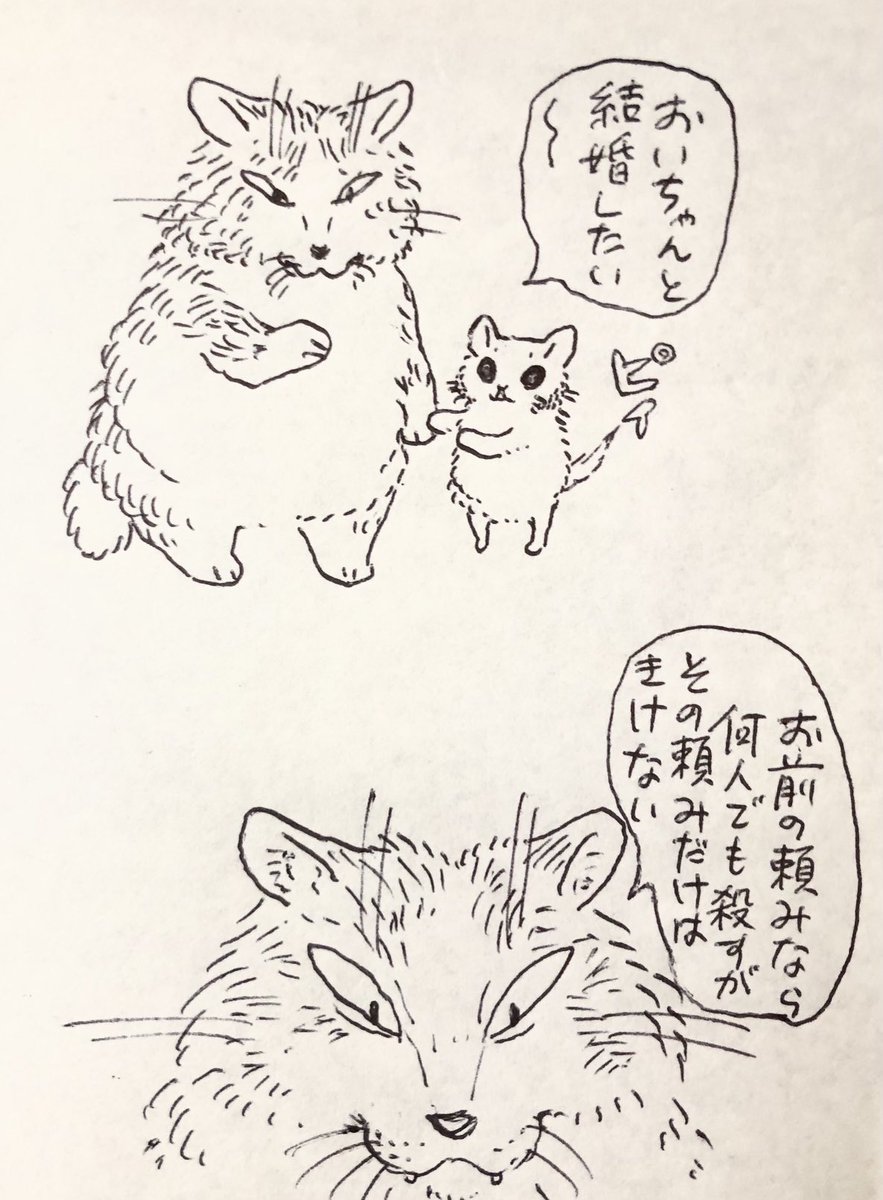 おいちゃんと
結婚したい
〜
ピ
イ
お前の頼みなら
何人でも殺すが
その頼みだけは
きけない